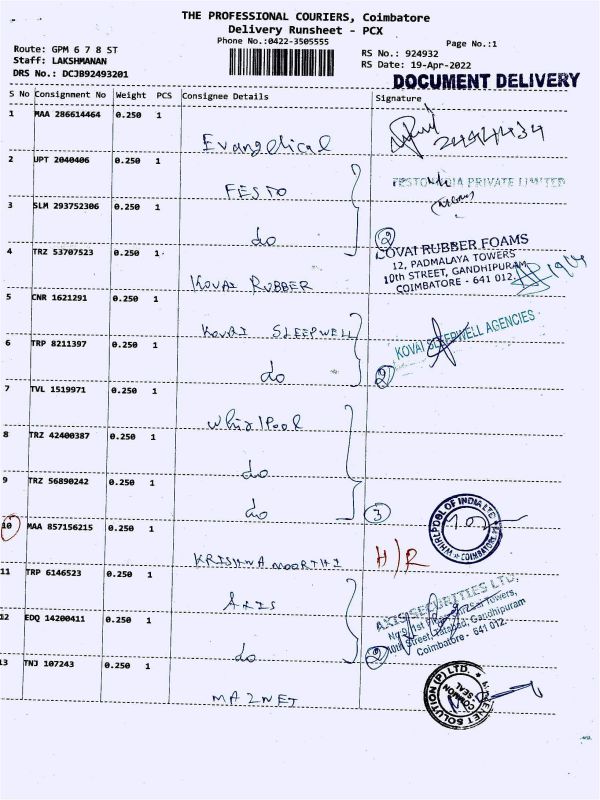 THE PROFESSIONAL COURIERS, Coimbatore
Delivery Runsheet - PCX
Phone No.:0422-3505555
Page No.:1
Route: GPM 6 7 8 ST
Staff: LAKSHMANAN
DRS No.: DCJB92493201
RS No.: 924932
RS Date: 19-Apr-2022
DOCUMENT DELIVERY
S No Consignment No Weight PCS Consignee Details Signature
1 MAA 286614464 0.250 1
Evangelical
2 UPT 2040406 0.250 1
FESTO
PRIVATE LIMITED
3 SLM 293752306 0.250 1
do 2
4 TRZ 53707523 0.250 1
KOVAI RUBBER
KOVAI RUBBER FOAMS
12, PADMALAYA TOWERS
10th STREET, GANDHIPURAM
COIMBATORE - 641 012.
5 CNR 1621291 0.250 1
KOVAI SLEEPWELL
KOVAI SLEEPWELL AGENCIES
6 TRP 8211397 0.250 1
do 2
7 TVL 1519971 0.250 1
Whirlpool
8 TRZ 42400387 0.250 1
do
9 TRZ 56890242 0.250 1
do 3
WHIRLPOOL OF INDIA LTD
COIMBATORE
10 MAA 857156215 0.250 1
KRISHNAMOORTHI H/R
11 TRP 6146523 0.250 1
AXIS
AXIS SECURITIES LTD,
Towers,
Gandhipuram
Coimbatore - 641 012.
12 EDQ 14200411 0.250 1
do 2
13 TNJ 107243 0.250 1
MAZNET
SOLUTION (P) LTD.
COMMON
SEAL